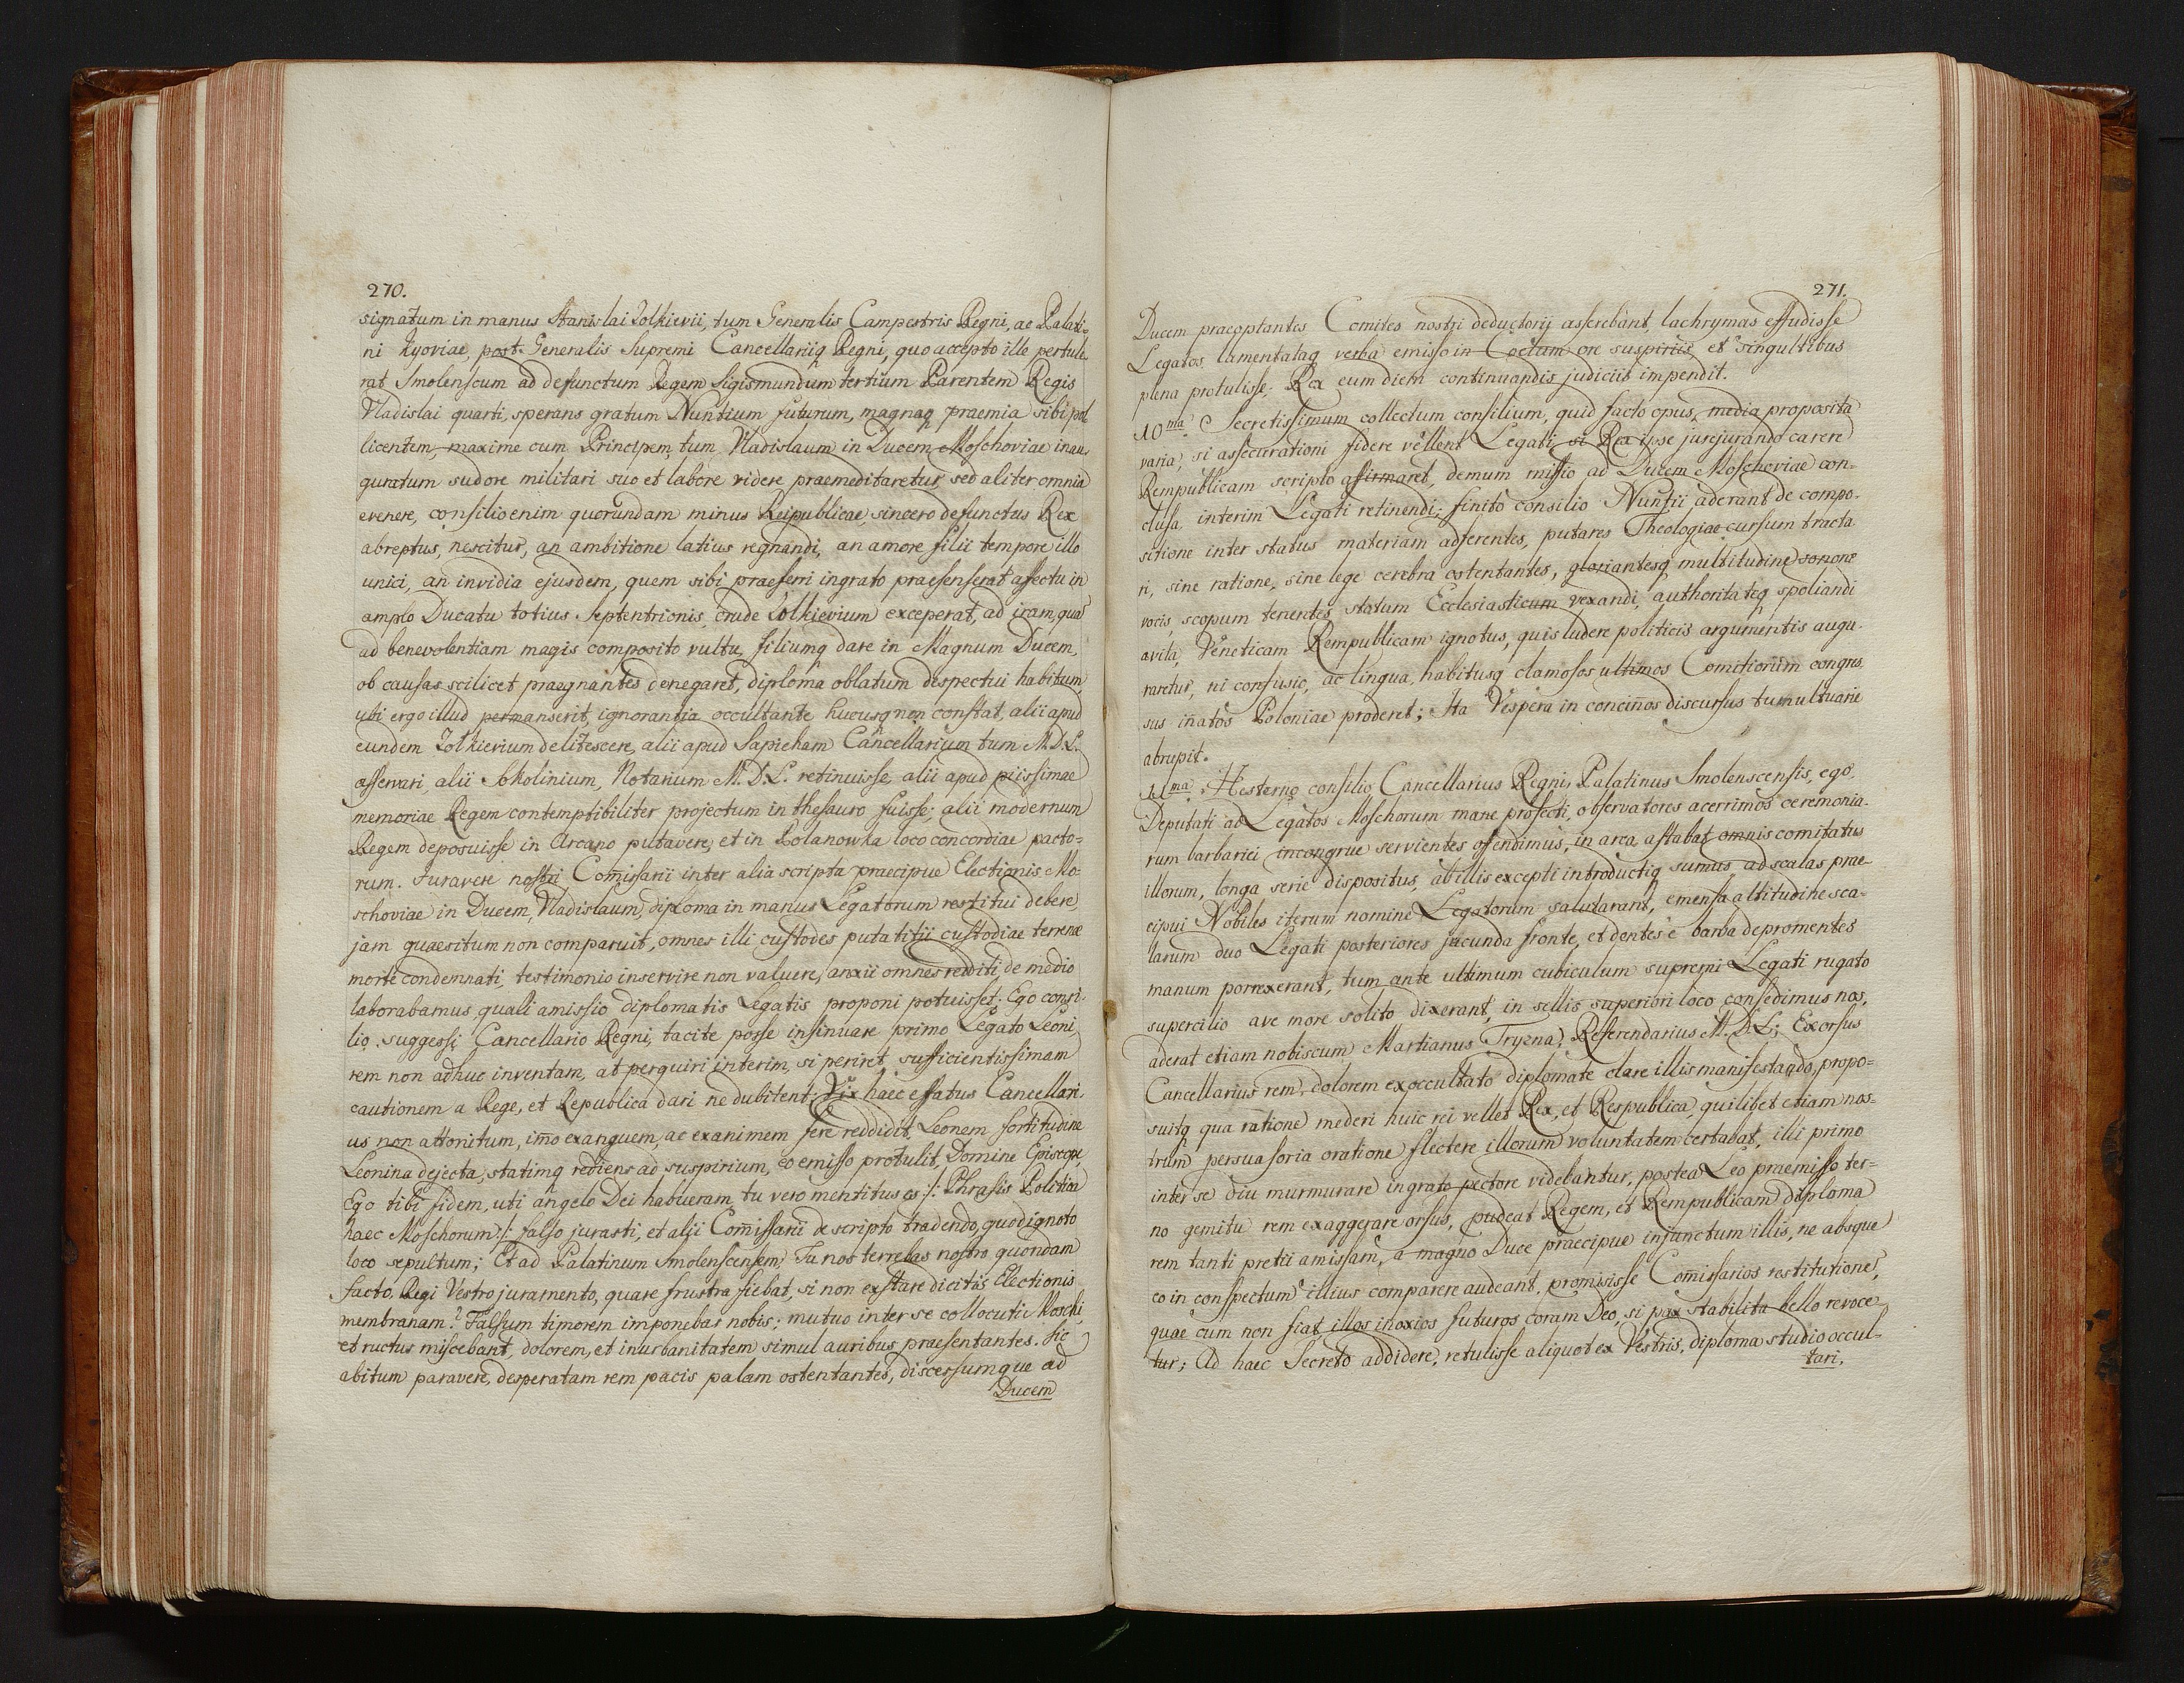 270.
signatum in manus Stanislai Zolkievii, tum Generalis Campestris Regni, ac Palati=
ni Kyoviae, post Generalis Supremi Cancellariiq Regni, quo accepto ille pertule
rat Smolenscum ad defunctum Regem Sigismundum tertium Parentem Regis
Vladislai quarti, sperans gratum Nuntium futurum, magnaq praemia sibi pol
licentem, maxime cum Principem, tum Vladislaum in Ducem Moschoviae inau,
guratum sudore militari suo et labore videre praemeditaretur, sed aliter omnia
evenere, consilio enim quorundam minus Reipublicae, sincero defunctus Rex
abreptus, nescitur, an ambitione latius regnandi, an amore filii tempore illo
unici, an invidia ejusdem, quem sibi praeferri ingrato praesenserat affectu in
amplo Ducatu totius Septentrionis, crude Zolkievium exceperat, ad iram, qua
ad benevolentiam magis composito vultu, filiumq dare in Magnum Ducem,
ob causas scilicet praegnantes denegaret, diploma oblatum despectui habitum,
ubi ergo illud permanserit, ignorantia occultante hucusq non constat, alii apud
eundem Zolkievium delitescere, alii apud Sapieham Cancellarium tum M.D.L.
asservari, alii Sokolinium, Notarium M.D.L. retinuisse, alii apud piissimae
memoriae Regem contemptibiliter projectum in thesauro fuisse; alii modernum
Regem deposuisse in Arcano putavere, et in Polanowka loco concordiae pacto=
rum. Juravere nostri Comissarii inter alia scripta praecipue Electionis Mo=
schoviae in Ducem, Vladislaum, diploma in manus Legatorum restitui debere,
jam quaesitum non comparuit, omnes illi custodes putatitii custodiae terrenae
morte condemnati, testimonio inservire non valuere, anxii omnes redditi, de medio
laborabamus, quali amissio diplomatis Legatis proponi potuisset; Ego consi-
lio suggessi Cancellario Regni, tacite posse insinuare primo Legato Leoni,
rem non adhuc inventam, at perquiri interim, si periret, sufficientissimam
cautionem a Rege, et Republica dari ne dubitent; Vix haec effatus Cancellari,
us non attonitum, imo exanguem, ac exanimem fere reddidit, Leonem fortitudine
Leonina dejecta, statimq rediens ad suspirium, eo emisso protulit, Domine Episcope,
Ego tibi fidem, uti angelo Dei habueram, tu vero mentitus es :/: Phrasis Politica
haec Moschorum :/: falso jurasti, et alii Comissarii de scripto tradendo, quod ignoto
loco sepultum; Et ad Palatinum Smolenscensem, Tu nos terrebas nostro quondam
facto, Regi Vestro juramento, quare frustra fiebat, si non exstare dicitis Electionis
membranam? Falsum timorem imponebas nobis; mutuo inter se collocuti Moschi,
et ructus miscebant, dolorem, et inurbanitatem simul auribus praesentantes. Sic
abitum paravere, desperatam rem pacis palam ostentantes, discessumque ad
Ducem
271.
Ducem praeoptantes Comites nostri deductorii asserebant, lachrymas effudisse
Legatos, lamentataq verba emisso in Coelum ore suspiriis, et singultibus
plena protulisse; Rex eum diem continuandis judiciis impendit.
10ma. Secretissimum collectum consilium, quid facto opus, media proposita
varia, si assecurationi fidere vellent Legati, si Rex ipse jurejurando carere
Rempublicam scripto affirmaret, demum missio ad Ducem Moschoviae con=
clusa, interim Legati retinendi; finito consilio Nuntii aderant de compo-
sitione inter status materiam adferentes, putares Theologiae cursum tracta
ri, sine ratione, sine lege cerebra ostentantes, gloriantesq multitudine sonorae
vocis, scopum tenentes, statum Ecclesiasticum vexandi, authoritateq spoliandi
avita, Veneticam Rempublicam ignotus, quis ludere politicis argumentis augu-
raretur, ni confusio, ac lingua, habitusq clamosos ultimos Comitiorum congres
sus inatos Poloniae proderet; Ita Vespera in concinos discursus tumultuarie
abrupit.
11ma. Hesterno consilio Cancellarius Regni, Palatinus Smolenscensis, ego,
Deputati ad Legatos Moschorum mane profecti, observatores acerrimos ceremonia-
rum barbarici incongrue servientes offendimus, in area astabat omnis comitatus
illorum, longa serie dispositus, ab illis excepti introductiq sumus, ad scalas prae-
cipui Nobiles iterum nomine Legatorum salutarant, emensa altitudine sca-
larum duo Legati posteriores jucunda fronte, et dentes e barba depromentes
manum porrexerant, tum ante ultimum cubiculum supremi Legati rugato
supercilio ave more solito dixerant, in sellis superiori loco consedimus nos,
aderat etiam nobiscum Martianus Tryzna, Referendarius M.D.L; Exorsus
Cancellarius rem, dolorem ex occultato diplomate clare illis manifestando, propo=
suitq qua ratione mederi huic rei vellet Rex, et Respublica, quilibet etiam nos=
trum persuasoria oratione flectere illorum voluntatem certabat, illi primo
inter se diu murmurare ingrato pectore videbantur, postea Leo praemisso ter=
no gemitu rem exaggerare orsus, pudeat Regem, et Rempublicam diploma
rem tanti pretii amissam, a magno Duce praecipue injunctum illis, ne absque
eo in conspectum illius comparere audeant, promisisse Comissarios restitutione,
quae cum non fiat illos inoxios futuros coram Deo, si pax stabilita bello revoce
tur; Ad haec Secreto addidere, retulisse aliquot ex Vestris, diploma studio occul-
tari,